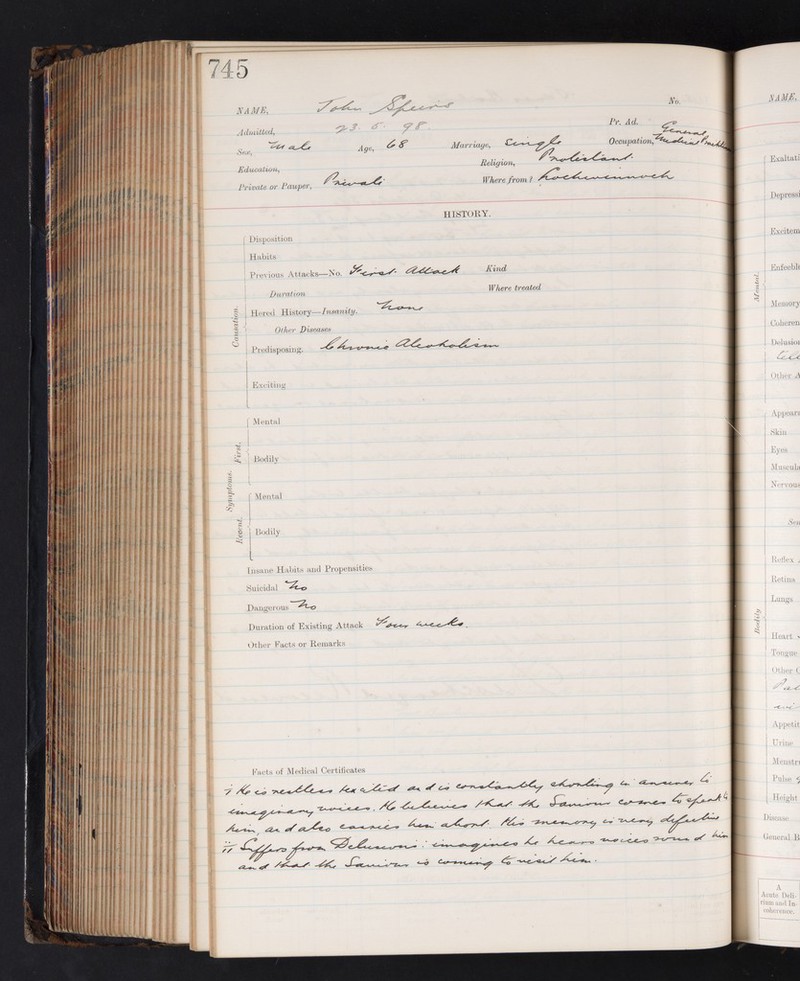 745
NAME, John Speirs No.
Admitted, 23. 5. 98. Pr. Ad.
Sex, Male Age, 68 Marriage, Single Occupation, General Medical
Education, Religion, Protestant
Private or Pauper, Private Where from? Lochwinnoch
HISTORY.
Causation.
Disposition
Habits
Previous Attacks—No. First Attack Kind
Duration Where treated
Hered History—Insanity. None
Other Diseases
Predisposing. Chronic Alcoholism
Exciting
Symptoms.
First.
Mental
Bodily
Recent.
Mental
Bodily
Insane Habits and Propensities
Suicidal No
Dangerous No
Duration of Existing Attack Four weeks.
Other Facts or Remarks
Facts of Medical Certificates
i He is restless & excited and is constantly shouting in answer to
imaginary voices. He believes that the Saviour comes to speak to
him, and also carries him about. His memory is very defective
ii Suffers from Delusions: imagines he hears voices round him
and that the Saviour is coming to visit him.
NAME,
Mental.
Exaltati
Depressi
Excitem
Enfeeble
Memory
Coheren
Delusion
Other A
Bodily
Appeara
Skin
Eyes
Muscula
Nervous
Sen
Reflex
Retina
Lungs
Heart
Tongue
Other
Appetit
Urine
Menstru
Pulse
Height
Disease
General B
A
Acute Deli-
rium and In-
coherence.